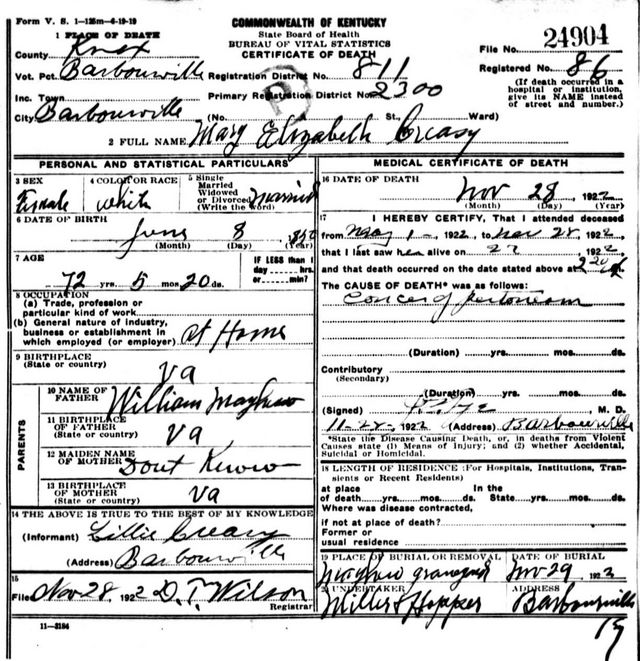 Form V. S. 1—125m—6-19-19
1 PLACE OF DEATH
COMMONWEALTH OF KENTUCKY
State Board of Health
BUREAU OF VITAL STATISTICS
CERTIFICATE OF DEATH
County Knox
File No. 24904
Vot. Pct. Barbourville Registration District No. 811
Registered No. 86
(If death occurred in a hospital or institution, give its NAME instead of street and number.)
Inc. Town
Primary Registration District No. 2300
City Barbourville (No. St., Ward)
2 FULL NAME Mary Elizabeth Creasy
PERSONAL AND STATISTICAL PARTICULARS
3 SEX Female
4 COLOR OR RACE white
5 Single Married Widowed or Divorced (Write the word) Married
6 DATE OF BIRTH
June 8
(Month) (Day) (Year)
7 AGE
IF LESS than 1 day----hrs. or----min?
72 yrs. 5 mos. 20 ds.
8 OCCUPATION
(a) Trade, profession or particular kind of work
(b) General nature of industry, business or establishment in which employed (or employer) at Home
9 BIRTHPLACE (State or country)
Va
PARENTS
10 NAME OF FATHER William
11 BIRTHPLACE OF FATHER (State or country) Va
12 MAIDEN NAME OF MOTHER Dont Know
13 BIRTHPLACE OF MOTHER (State or country) Va
14 THE ABOVE IS TRUE TO THE BEST OF MY KNOWLEDGE
(Informant) Lillie Creasy
(Address) Barbourville
15
Filed Nov 28, 1922 D. T. Wilson
Registrar
11—3184
MEDICAL CERTIFICATE OF DEATH
16 DATE OF DEATH
Nov 28, 1922
(Month) (Day) (Year)
17 I HEREBY CERTIFY, That I attended deceased
from May 1, 1922, to Nov 28, 1922
that I last saw her alive on 27 1922
and that death occurred on the date stated above at
The CAUSE OF DEATH* was as follows:
Cancer of peritoneum
(Duration) yrs. mos. ds.
Contributory
(Secondary)
(Duration) yrs. mos. ds.
(Signed) M. D.
11-28-, 1922 (Address) Barbourville
*State the Disease Causing Death, or, in deaths from Violent Causes state (1) Means of Injury; and (2) whether Accidental, Suicidal or Homicidal.
18 LENGTH OF RESIDENCE (For Hospitals, Institutions, Transients or Recent Residents)
at place of death yrs. mos. ds. In the State yrs. mos. ds.
Where was disease contracted,
if not at place of death?
Former or usual residence
19 PLACE OF BURIAL OR REMOVAL
graveyard
DATE OF BURIAL
Nov 29, 1922
20 UNDERTAKER
Miller & Hopper
ADDRESS
Barbourville
19